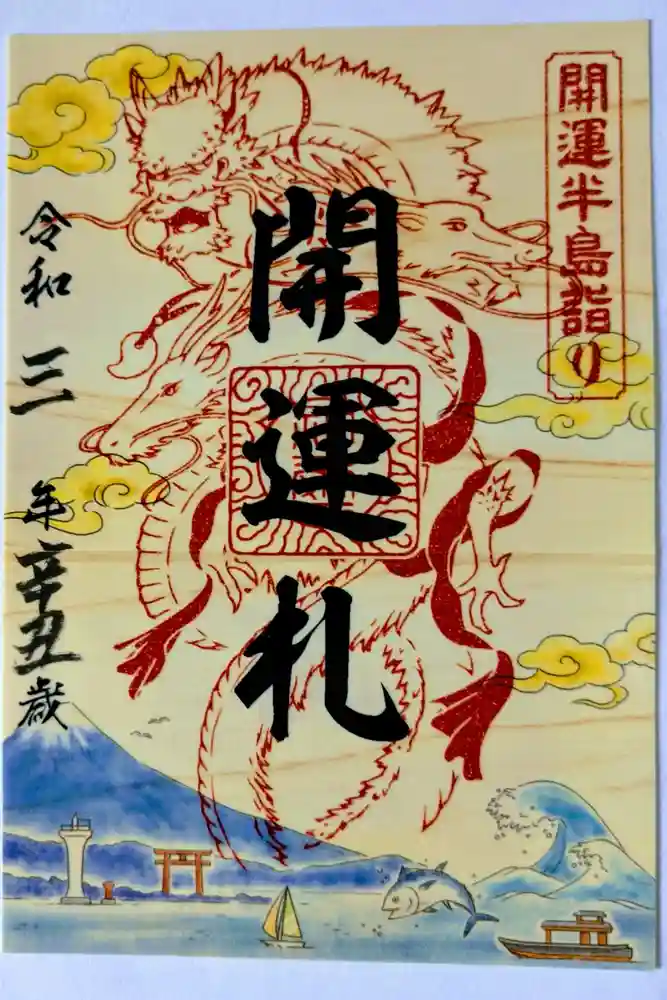 開運半島詣り
開運札
令和三年辛丑歳